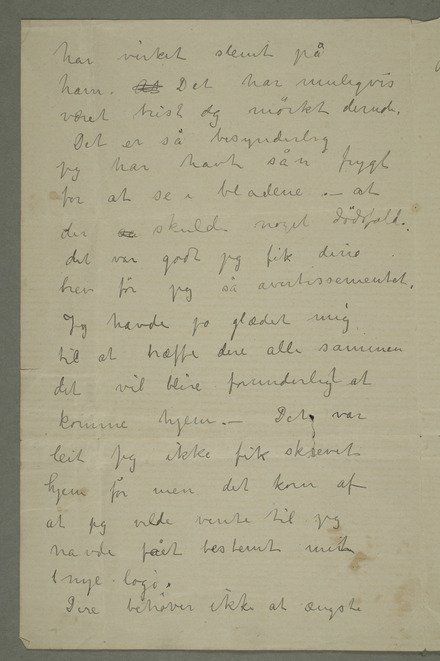 har virket slemt på
ham. Det har muligvis
været trist og mörkt derude.
Det er så besynderlig
jeg har havt sån frygt
for at se i bladene — at
der skulde noget dödsfald.
det var godt jeg fik dine
brev för jeg så avertissementet.
Jeg havde jo glædet mig
til at træffe dere alle sammen
det vil blive forunderligt at
komme hjem. — Det var
leit jeg ikke fik skrevet
hjem för men det kom af
at jeg vilde vente til jeg
havde fået bestemt mit
nye logi.
Dere behöver ikke at ængste